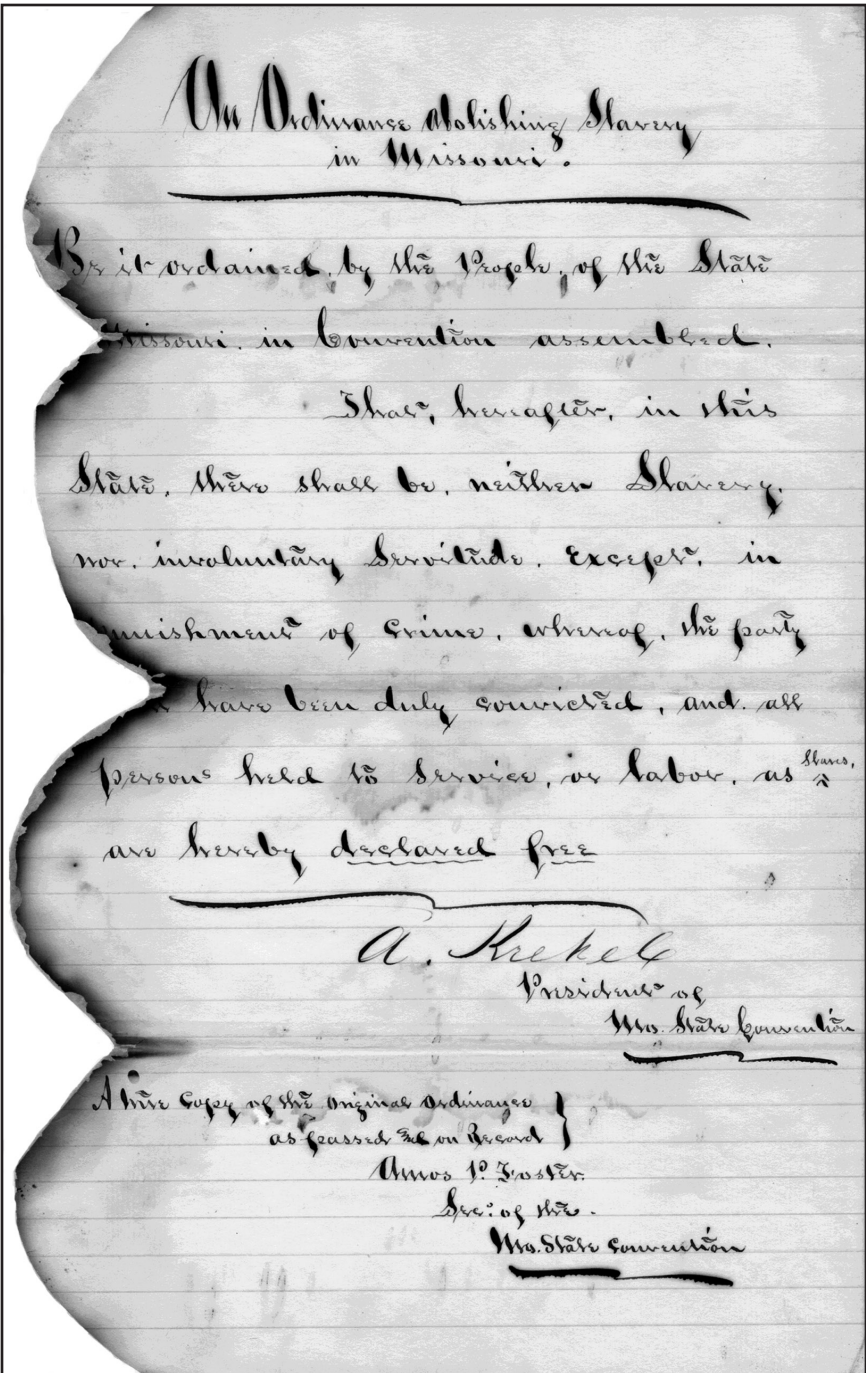 An Ordinance abolishing Slavery
in Missouri.
Be it ordained, by the People, of the State
Missouri, in Convention assembled,
That, hereafter, in this
State, there shall be, neither Slavery,
nor, involuntary Servitude, Except, in
punishment of crime, whereof, the party
have been duly convicted, and all
persons held to service, or labor, as Slaves,
are hereby declared free
A. Krekel
President of
Mo. State Convention
A true copy of the original ordinance
as passed & on Record
Amos P. Foster.
Secy. of the.
Mo. State Convention